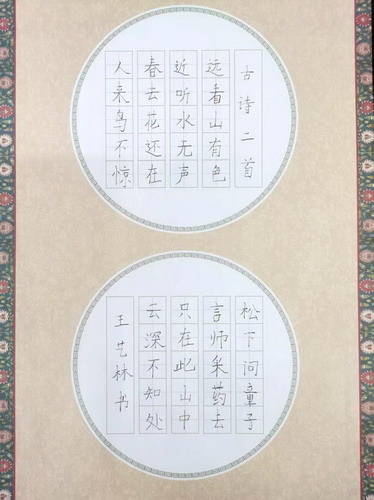 古诗二首
远看山有色
近听水无声
春去花还在
人来鸟不惊
松下问童子
言师采药去
只在此山中
云深不知处
王艺林书